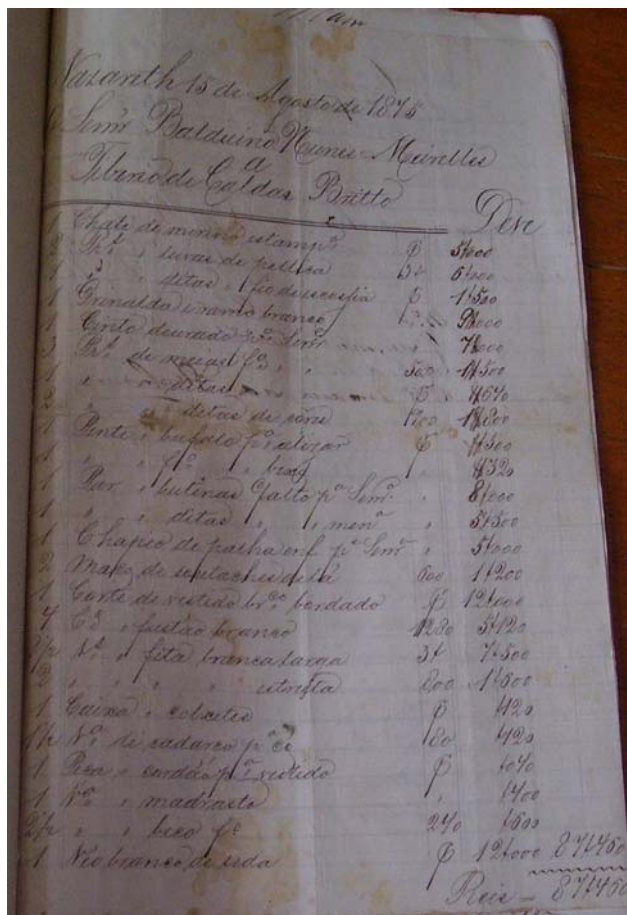 Nazareth 15 de Agosto de 1875
Senr. Balduino Nunes Meirelles
a
Tiberio de Caldas Britto
Deve
1 Chale de merinó estampo. $ 5$000
2 Prs. " luvas de pellica 3$ 6$000
1 " " ditas " fio de escossia $ 1$500
1 Grinalda e ramo branco 9$000
1 Cinto dourado pa. Senra. 7$000
3 Prs. de meias 500 1$500
1 " " ditas $ $640
2 " " ditas de cores 1$800
1 Pente " bufalo pa. alizar $ $500
1 " " " " $320
1 Par " butinas salto pa. Senra. " 8$000
1 " ditas " " mena. " 5$500
1 Chapeo de palha enf. pa. Senra. " 5$000
2 Maços de soutache de lã 600 1$200
1 Corte de vestido brco. bordado $ 12$000
4 Cos. " fustão branco 1280 5$120
2 1/2 Vs. " fita branca larga 3$ 7$500
2 " " " " estreita 800 1$600
1 Caixa " colxetes $ $120
de cadarço pa. 80 $120
1 Peça " cordão pa. vestido $ $040
1 Va. " madrasto " $400
2 1/2 " " bico 240 $600
1 Véo branco de seda $ 12$000 87$450
Reis — 87$450